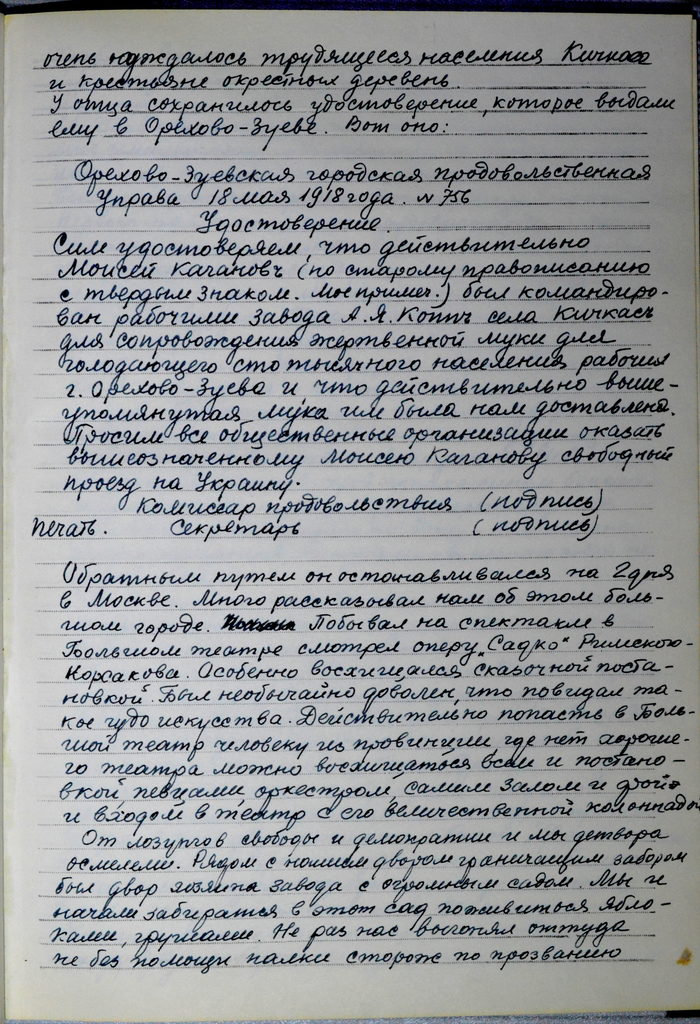 очень нуждалось трудящееся населения Кичкаса
и крестьяне окрестных деревень.
У отца сохранилось удостоверение, которое выдали
ему в Орехово-Зуеве. Вот оно:
Орехово-Зуевская городская продовольственная
Управа 18 мая 1918 года. № 756
Удостоверение.
Сим удостоверяем, что действительно
Моисей Кагановъ (по старому правописанию
с твердым знаком. Мое примеч.) был командиро-
ван рабочими завода А.Я. Коппъ села Кичкасъ
для сопровождения жертвенной муки для
голодающего сто тысячного населения рабочих
г. Орехово-Зуева и, что действительно выше-
упомянутая мука им была нам доставлена.
Просим все общественные организации оказать
вышеозначенному Моисею Каганову свободный
проезд на Украину.
Комиссар продовольствия (подпись)
Печать. Секретарь (подпись)
Обратным путем он останавливался на 2 дня
в Москве. Много рассказывал нам об этом боль-
шом городе. Побывал на спектакле в
Большом театре смотрел оперу „Садко" Римского-
Корсакова. Особенно восхищался сказочной поста-
новкой. Был необычайно доволен, что повидал та-
кое чудо искусства. Действительно попасть в Боль-
шой театр человеку из провинции, где нет хороше-
го театра можно восхищаться всем и постано-
вкой певцами оркестром, самим залом и фойэ
и входом в театр с его величественной колоннадой
От лозунгов свободы и демократии и мы детвора
осмелели. Рядом с нашим двором граничащим забором
был двор хозяина завода с огромным садом. Мы и
начали забираться в этот сад поживиться ябло-
ками, грушами. Не раз нас выгонял оттуда
не без помощи палки сторож по прозванию